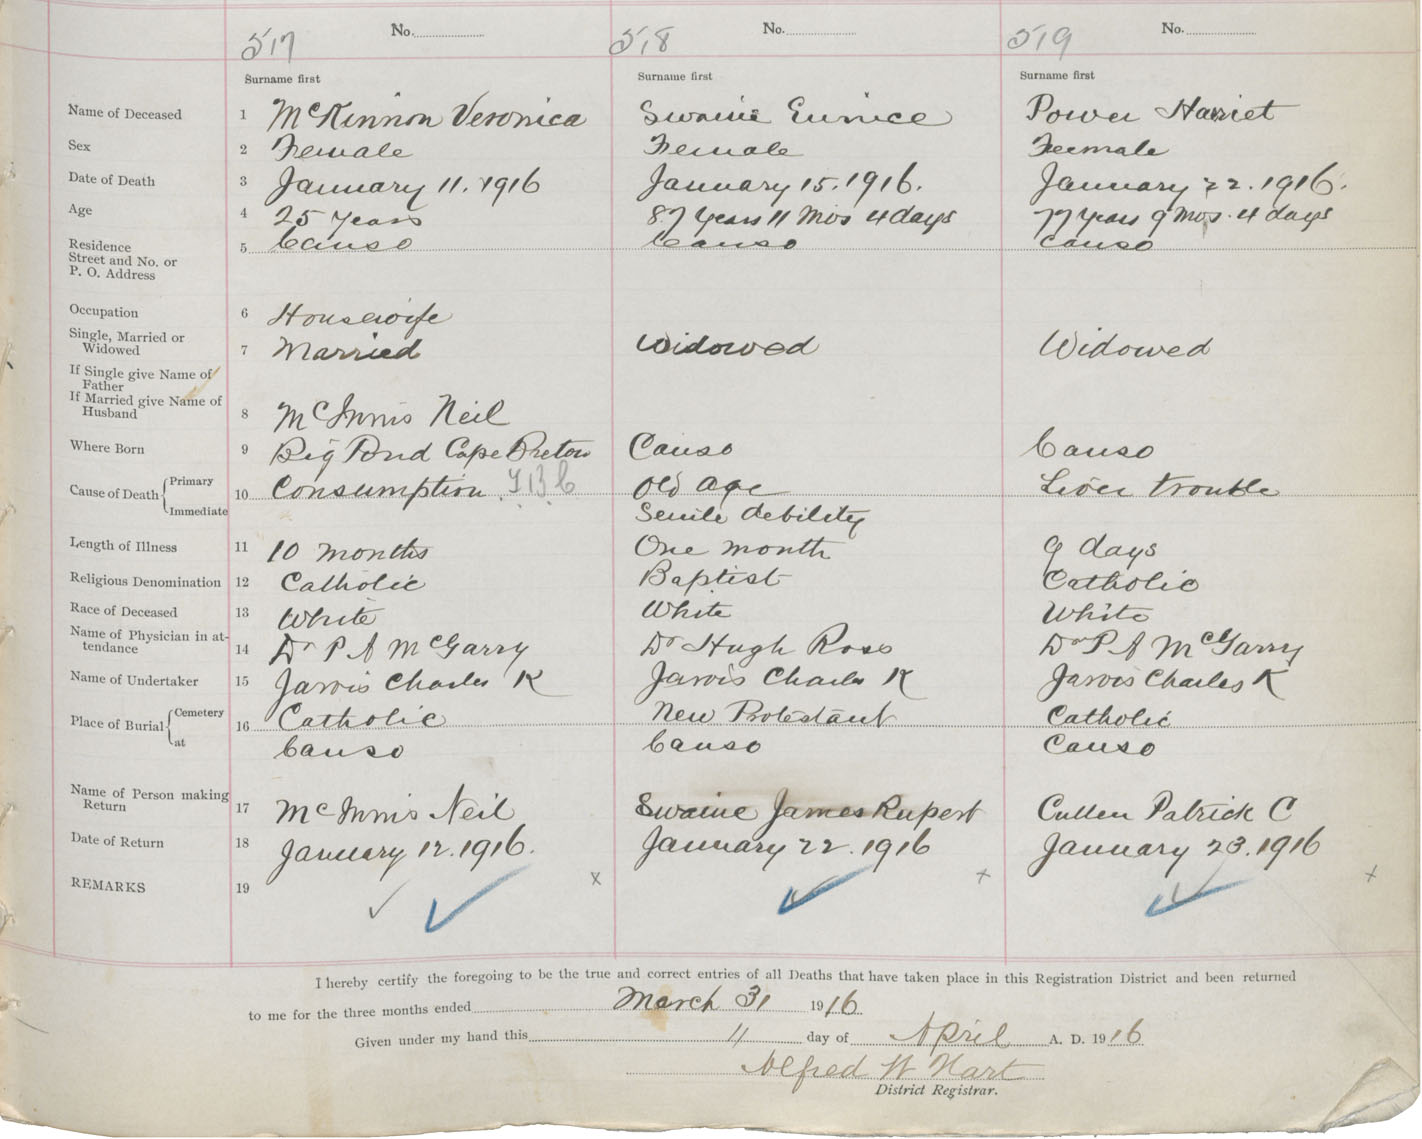 517 No. 518 No. 519 No.
Surname first Surname first Surname first
Name of Deceased 1 McKinnon Veronica Swaine Eunice Power Harriet
Sex 2 Female Female Feemale
Date of Death 3 January 11. 1916 January 15. 1916. January 22. 1916.
Age 4 25 Years 87 Years 11 Mos 4 days 77 Years 9 Mos. 4 days
Residence 5 Canso Canso Canso
Street and No. or
P. O. Address
Occupation 6 Housewife
Single, Married or
Widowed 7 Married Widowed Widowed
If Single give Name of
Father
If Married give Name of
Husband 8 McInnis Neil
Where Born 9 Big Pond Cape Breton Canso Canso
Cause of Death Primary 10 Consumption. Old Age Liver trouble
Immediate Senile debility
Length of Illness 11 10 months One month 9 days
Religious Denomination 12 Catholic Baptist Catholic
Race of Deceased 13 White White White
Name of Physician in at-
tendance 14 Dr P A McGarry Dr Hugh Ross Dr P A McGarry
Name of Undertaker 15 Jarvis Charles K Jarvis Charles K Jarvis Charles K
Place of Burial Cemetery 16 Catholic New Protestant Catholic
at Canso Canso Canso
Name of Person making
Return 17 McInnis Neil Swaine James Rupert Cullen Patrick C
Date of Return 18 January 12. 1916. January 22. 1916 January 23. 1916
REMARKS 19 x x x
I hereby certify the foregoing to be the true and correct entries of all Deaths that have taken place in this Registration District and been returned
to me for the three months ended March 31 1916
Given under my hand this 11 day of April A. D. 1916
Alfred W Hart
District Registrar.